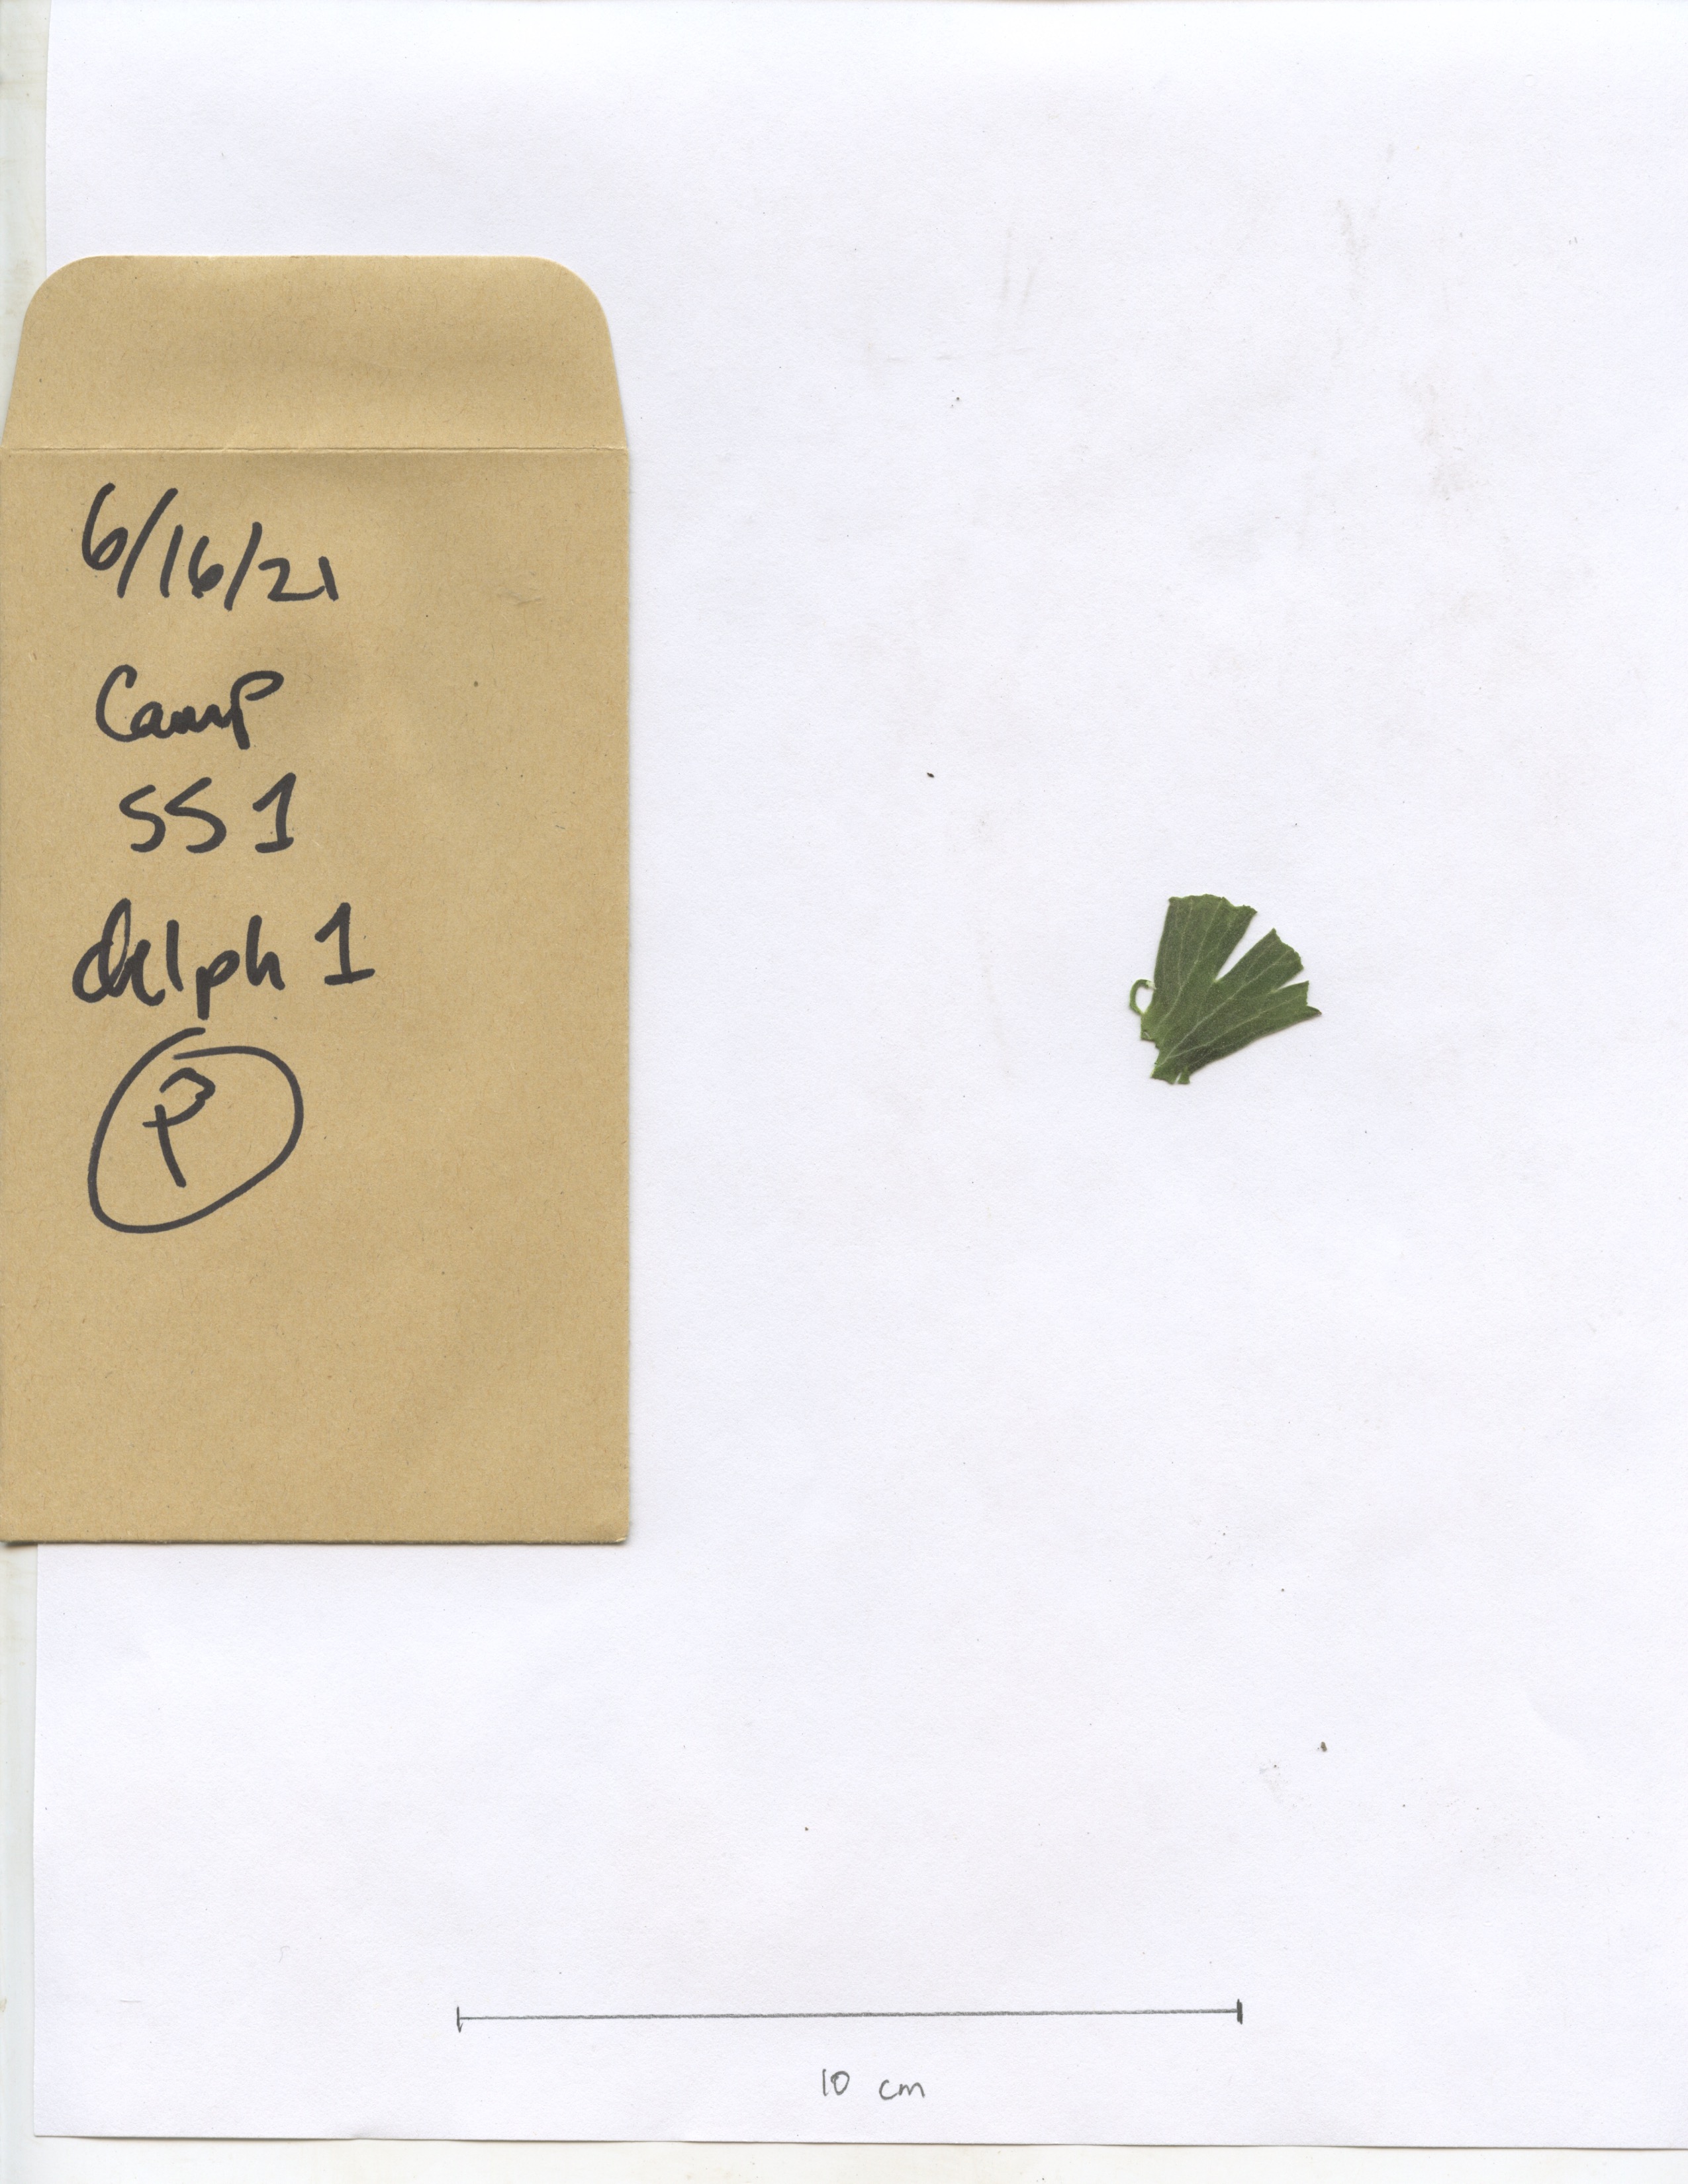 6/16/21
Camp
SS 1
delph 1
P
10 cm